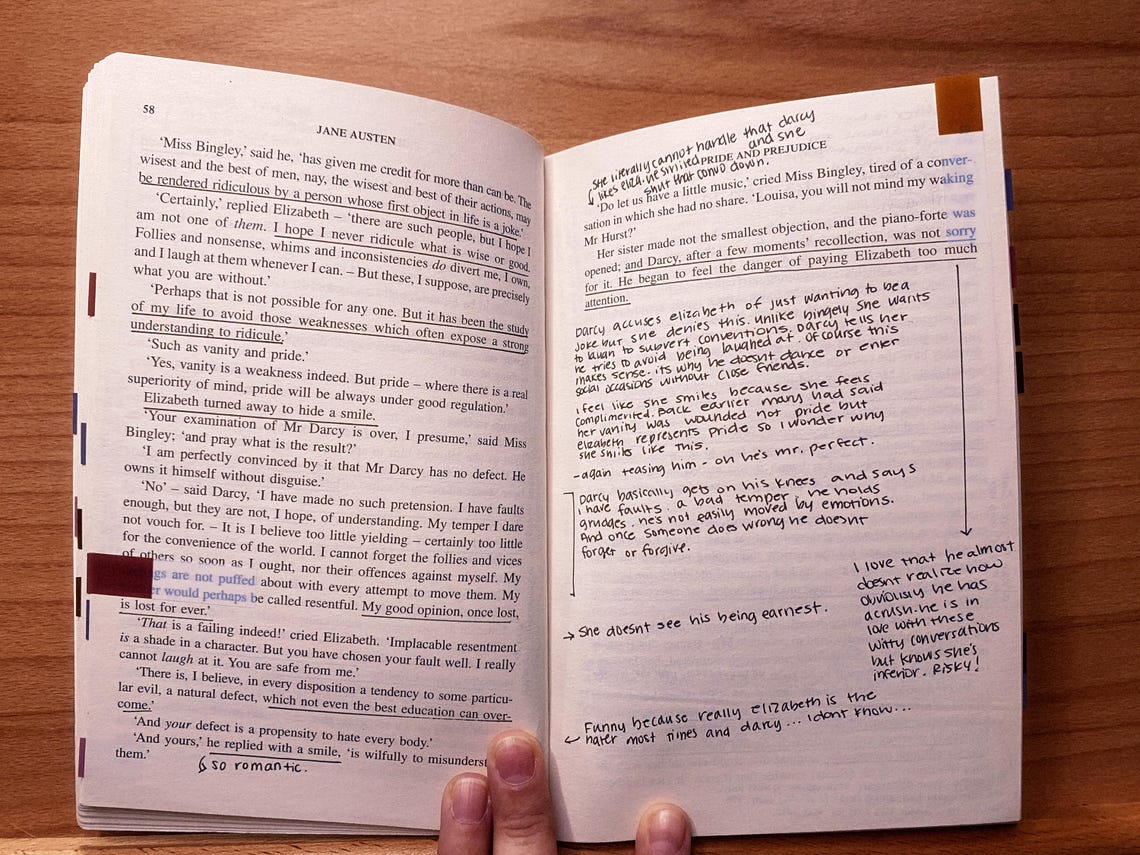 58
JANE AUSTEN
‘Miss Bingley,’ said he, ‘has given me credit for more than can be. The
wisest and the best of men, nay, the wisest and best of their actions, may
be rendered ridiculous by a person whose first object in life is a joke.’
‘Certainly,’ replied Elizabeth – ‘there are such people, but I hope I
am not one of them. I hope I never ridicule what is wise or good.
Follies and nonsense, whims and inconsistencies do divert me, I own,
and I laugh at them whenever I can. – But these, I suppose, are precisely
what you are without.’
‘Perhaps that is not possible for any one. But it has been the study
of my life to avoid those weaknesses which often expose a strong
understanding to ridicule.’
‘Such as vanity and pride.’
‘Yes, vanity is a weakness indeed. But pride – where there is a real
superiority of mind, pride will be always under good regulation.’
Elizabeth turned away to hide a smile.
‘Your examination of Mr Darcy is over, I presume,’ said Miss
Bingley; ‘and pray what is the result?’
‘I am perfectly convinced by it that Mr Darcy has no defect. He
owns it himself without disguise.’
‘No’ – said Darcy, ‘I have made no such pretension. I have faults
enough, but they are not, I hope, of understanding. My temper I dare
not vouch for. – It is I believe too little yielding – certainly too little
for the convenience of the world. I cannot forget the follies and vices
of others so soon as I ought, nor their offences against myself. My
gs are not puffed about with every attempt to move them. My
er would perhaps be called resentful. My good opinion, once lost,
is lost for ever.’
‘That is a failing indeed!’ cried Elizabeth. ‘Implacable resentment
is a shade in a character. But you have chosen your fault well. I really
cannot laugh at it. You are safe from me.’
‘There is, I believe, in every disposition a tendency to some particu-
lar evil, a natural defect, which not even the best education can over-
come.’
‘And your defect is a propensity to hate every body.’
‘And yours,’ he replied with a smile, ‘is wilfully to misunderst
them.’
so romantic.
she literally cannot handle that darcy
likes eliza. he smiled and she
shut that convo down.
PRIDE AND PREJUDICE
‘Do let us have a little music,’ cried Miss Bingley, tired of a conver-
sation in which she had no share. ‘Louisa, you will not mind my waking
Mr Hurst?’
Her sister made not the smallest objection, and the piano-forte was
opened; and Darcy, after a few moments’ recollection, was not sorry
for it. He began to feel the danger of paying Elizabeth too much
attention.
Darcy accuses elizabeth of just wanting to be a
joke but she denies this. unlike bingely she wants
to laugh to subvert conventions. Darcy tells her
he tries to avoid being laughed at. Of course this
makes sense. its why he doesnt dance or enter
social occasions without close friends.
i feel like she smiles because she feels
complimented. Back earlier mary had said
her vanity was wounded not pride but
elizabeth represents pride so i wonder why
she smiles like this.
- again teasing him - oh he's mr. perfect.
Darcy basically gets on his knees and says
i have faults. a bad temper, he holds
grudges. he's not easily moved by emotions.
And once someone does wrong he doesnt
forget or forgive.
I love that he almost
doesnt realize how
obviously he has
a crush. he is in
love with these
witty conversations
but knows she's
inferior. Risky!
→ She doesnt see his being earnest.
Funny because really Elizabeth is the
← hater most times and darcy... idont know...